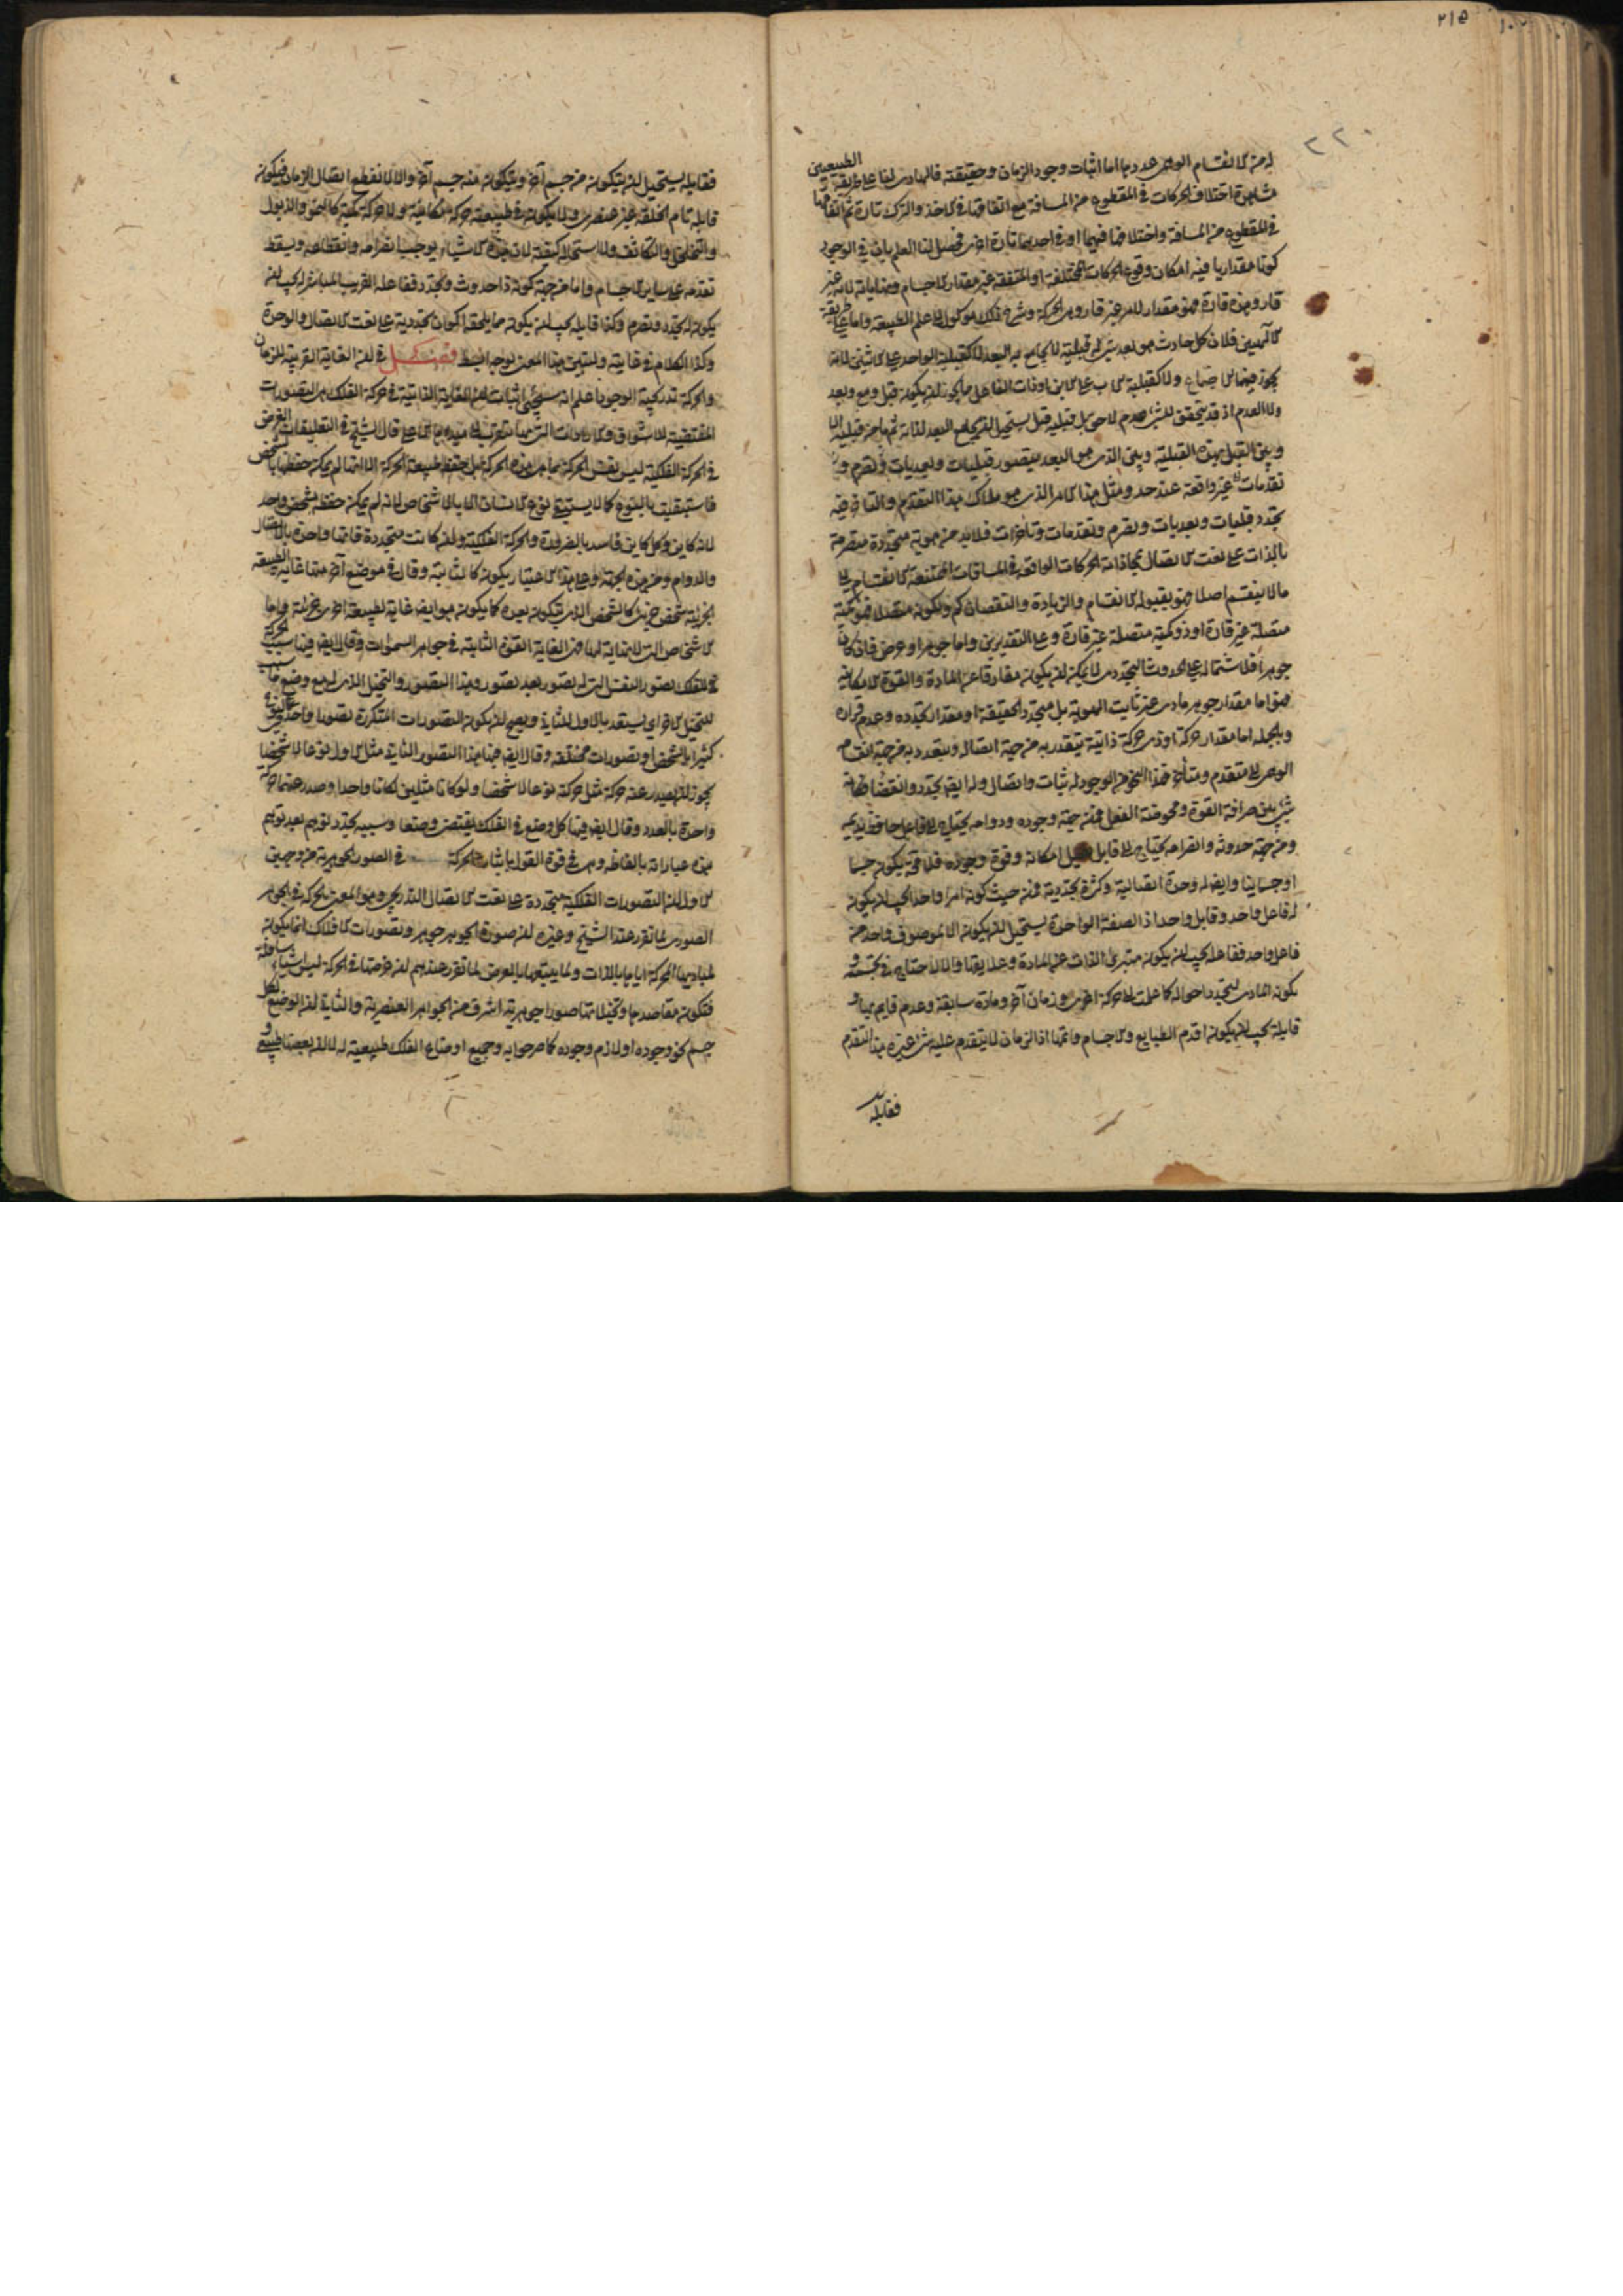 ٢١٥
٢٢٠
له من الانقسام الوهمى عددها اما اثبات وجود الزمان وحقيقته فالهادى لنا على طريقة الطبيعيين
مشاهدة اختلاف الحركات فى المقطوع من المسافة مع اتفاقها فى الاخذ والترك تارة ثم اتفاقها
فى المقطوع من المسافة واختلافها فيهما او فى احديهما تارة اخرى فحصل لنا العلم بان فى الوجود
كونا مقداريا فيه امكان وقوع الحركات المختلفة او المتفقة غير مقدار الاجسام ونهاياتها لانه غير
قار وهذه قارة فهو مقدار لامر غير قار وهو الحركة وشرح ذلك موكول الى علم الطبيعة واما على طريقة
الالهيين فلان كل حادث هو بعد شىء له قبلية لا يجامع به البعد لا كقبلية الواحد على الاثنين لانه
يجوز فيهما الاجتماع ولا كقبلية الاب على الابن او ذات الفاعل مما يجوز ان يكون قبل ومع وبعد
ولا العدم اذ قد يتحقق للشىء عدم لاحق بل قبلية قبل يستحيل ان يجامع البعد لذاته ثم ما من قبلية الا
وبين القبل بهذه القبلية وبين الذى هو البعد يتصور قبليات وبعديات وتصرم و
تقدمات غير واقعة عند حد ومثل هذا الامر الذى هو ملاك هذا التقدم والتاخر فيه
تجدد قبليات وبعديات وتصرم وتقدمات وتاخرات فلا بد من هوية متجددة متصرمة
بالذات على نعت الاتصال لمحاذاته الحركات الواقعة فى المسافات الممتنعة الانقسام الى
ما لا ينقسم اصلا فهو بقبوله الانقسام والزيادة والنقصان كم ولكونه متصلا فهو كمية
متصلة غير قارة او ذو كمية متصلة غير قارة وعلى التقديرين واما جوهر او عرض فان كان
جوهرا فلاشتماله على الحدوث التجددى لا يمكن ان يكون مفارقا عن المادة والقوة الامكانية
فهو اما مقدار جوهر مادى غير ثابت الهوية بل متجدد الحقيقة او مقدار تجدده وعدم قراره
وبالجملة اما مقدار حركة او ذى حركة ذاتية يتقدر به من جهة اتصاله ويتعدد به من جهة انقسامه
الوهمى الى متقدم ومتاخر فهذا النحو من الوجود له ثبات واتصال وله ايضا تجدد وانقضاء فكانه
شىء بين صرافة القوة ومحوضة الفعل فمن جهة وجوده ودوامه يحتاج الى فاعل حافظ يديمه
ومن جهة حدوثه وانصرامه يحتاج الى قابل يقبل امكانه وقوة وجوده فلا محة يكون جسما
او جسمانيا وايضا له وحدة اتصالية وكثرة تجددية فمن حيث كونه امرا واحدا يجب ان يكون
له فاعل واحد وقابل واحد اذ الصفة الواحدة يستحيل ان يكون الا لموصوف واحد من
فاعل واحد ففاعله يجب ان يكون متبرئ الذات عن المادة وعلايقها والا لاحتاج فى تجسمه و
تكونه المادى لتجدد احواله كما علمت الى حركة اخرى وزمان آخر ومادة سابقة وعدم قايم بها و
قابله يجب ان يكون اقدم الطبايع والاجسام واتمها اذ الزمان لا يتقدم عليه شىء غيره هذا التقدم
فقابله
فقابله يستحيل ان يتكون من جسم آخر ويتكون منه جسم آخر والا لانقطع اتصال الزمان فيكون
قابله تام الخلقة غير عنصرى ولا يكون فى طبيعته حركة مكانية ولا حركة كمية كالنمو والذبول
والتخلخل والتكاثف ولا استحالة كيفية لان هذه الاشياء يوجب انصرامه وانقطاعه ويسقط
تقدمه على ساير الاجسام واما من جهة كونه ذا حدوث وتجدد ففاعله القريب المباشر له يجب ان
يكون له تجدد وتصرم وكذا قابله يجب ان يكون مما يلحقه اكوان تجددية على نعت الاتصال والوحدة
وكذا الكلام فى غايته وليتبين هذا المعنى لوجه ابسط فصل فى ان الغاية القريبة للزمان
والحركة تدريجية الوجود اعلم انه سيجئ اثبات ان الغاية الذاتية فى حركة الفلك هى التصورات
المقتضية للاشواق والارادات التى بها يتقرب الى مبدئها الاعلى قال الشيخ فى التعليقات الغرض
فى الحركة الفلكية ليس نفس الحركة بما هى هذه الحركة بل حفظ طبيعة الحركة الا انها لم يمكن حفظها بالشخص
فاستبقيت بالنوع كما لا يستبقى نوع الانسان الا بالاشخاص لانه لم يمكن حفظه بشخص واحد
لانه كاين وكل كاين فاسد بالضرورة والحركة الفلكية وان كانت متجددة فانها واحدة بالاتصال
والدوام ومن هذه الجهة وعلى هذا الاعتبار يكون كالثابتة وقال فى موضع آخر منها غاية الطبيعة
الجزئية شخص جزئى كالشخص الذى يتكون بعده كما يكون هو ايضا غاية لطبيعة اخرى جزئية واما
الاشخاص التى لا نهاية لها فهى الغاية القوة الثابتة فى جواهر السموات وقال ايضا فيها سبب الحركة
فى الفلك تصور النفس التى له تصور بعد تصور وهذا التصور والتخيل الذى له مع وضع ما سبب
للتخيل الاخر اى يستعد بالاول للثانى ويصح ان يكون التصورات المتكررة تصورا واحدا فى النوع
كثيرا بالشخص او تصورات مختلفة وقال ايضا فيها هذا التصور الثانى مثل الاول نوعا لا شخصا
يجوز ان يصدر عنه حركة مثل حركة نوعا لا شخصا ولو كانا مثلين لكانا واحدا وصدر عنهما حركة
واحدة بالعدد وقال ايضا فيها كل وضع فى الفلك يقتضى وضعا وسببه تجدد توهم بعد توهم
هذه عباراته بالفاظه وهى فى قوة القول باثبات الحركة فى الصور الجوهرية من وجهين
الاول ان التصورات الفلكية متجددة على نعت الاتصال التدريجى وهو المعنى بالحركة فى الجوهر
الصورى لما تقرر عند الشيخ وغيره ان صورة الجوهر جوهر وتصورات الافلاك انما يكون
لمباديها المحركة اياها بالذات ولما يتبعها بالعرض لما تقرر عندهم ان غرضها فى الحركة ليس اشياء سافلة
فتكون مقاصدها وتخيلاتها صورا جوهرية اشرف من الجواهر العنصرية والثانى ان الوضع لكل
جسم نحو وجوده او لازم وجوده كما صرحوا به وجميع اوضاع الفلك طبيعية له لا ان بعضها طبيعى و